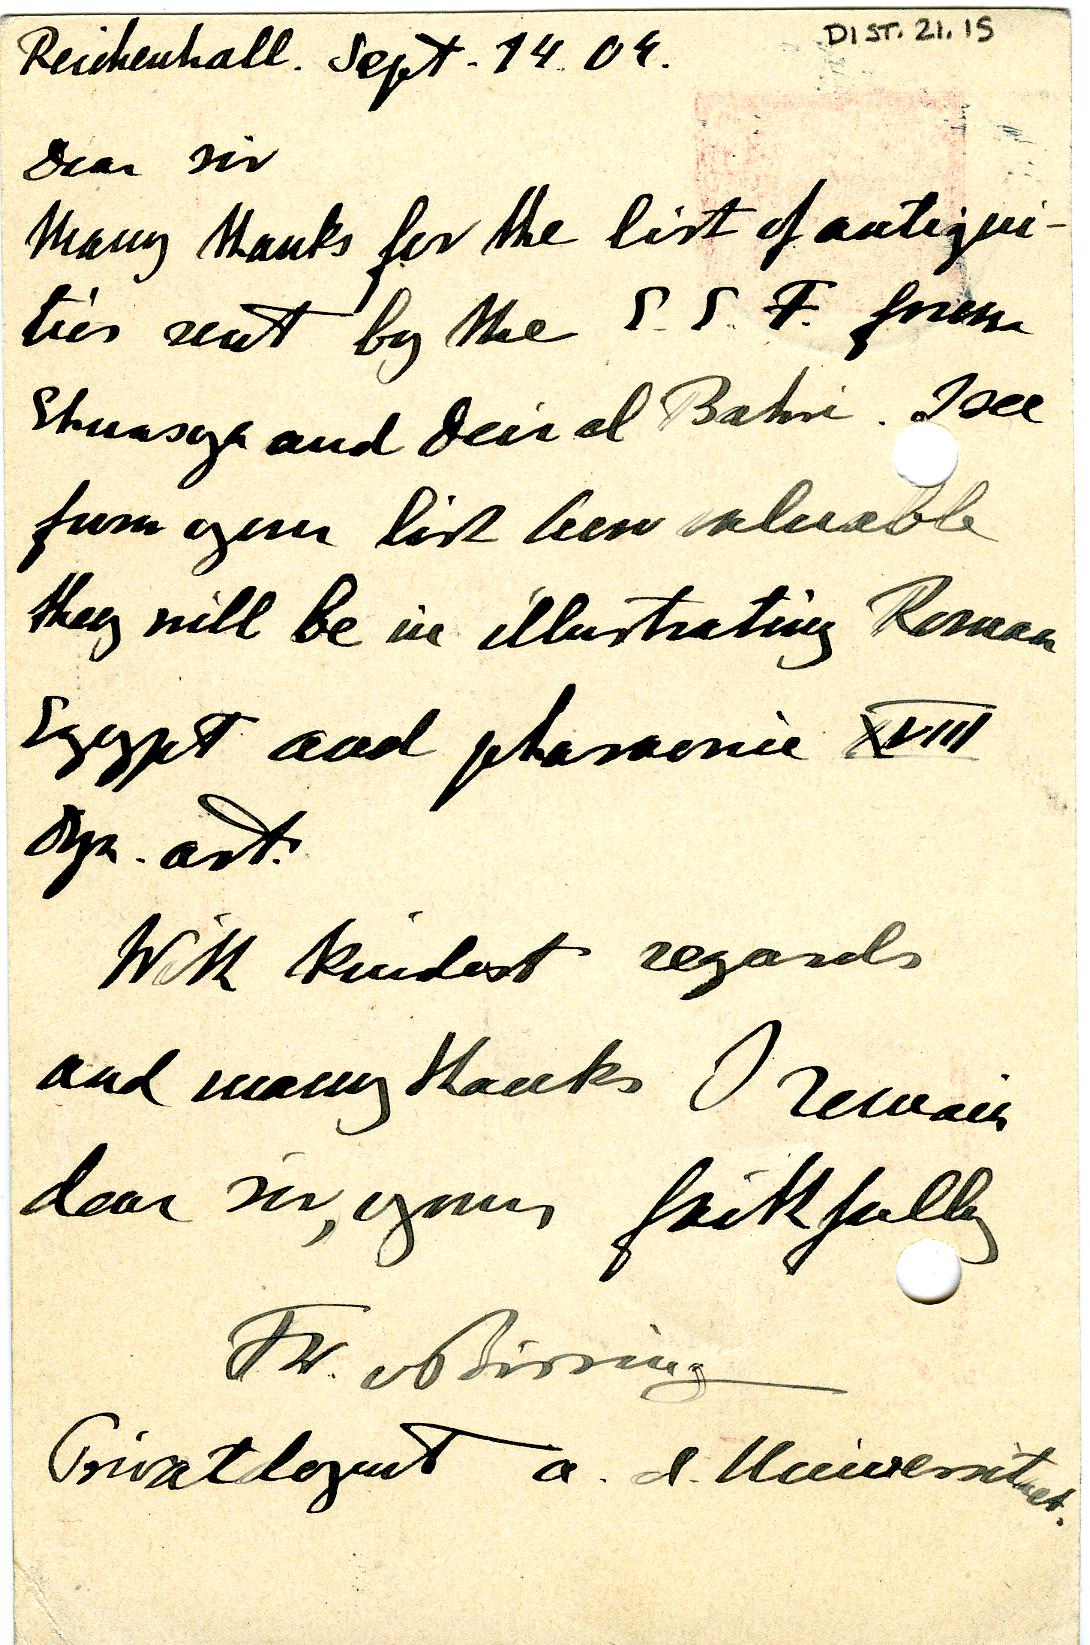 DIST. 21.15
Reichenhall. Sept. 14. 04.
Dear sir
Many thanks for the list of antiqui-
ties sent by the E. E. F. from
Ehnasya and Deir el Bahri. I see
from your list how valuable
they will be in illustrating Roman
Egypt and pharaonic XVIII
Dyn. art.
With kindest regards
and many thanks I remain
dear sir, yours faithfully
Fr. v Bissing
Privatdozent a. d. Universitaet.